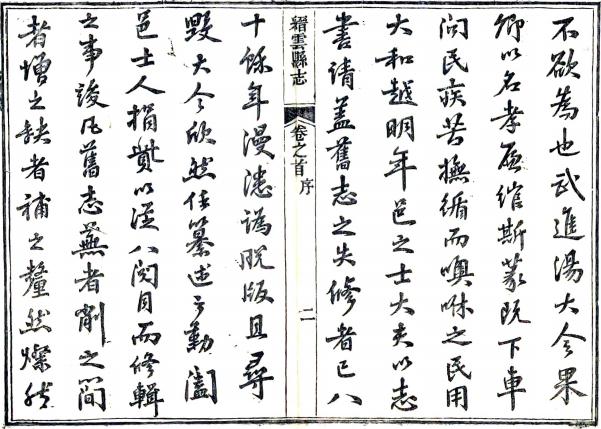 不欲為也武進湯大令果
卿以名孝廉綰斯篆既下車
問民疾苦撫循而噢咻之民用
大和越明年邑之士大夫以志
書請蓋舊志之失修者已八
縉雲縣志
卷之首
序
二
十餘年漫漶譌脫版且尋
毀大令欣然任纂述之勤闔
邑士人捐貲以從八閱月而修輯
之事竣凡舊志蕪者削之簡
者增之缺者補之釐然燦然